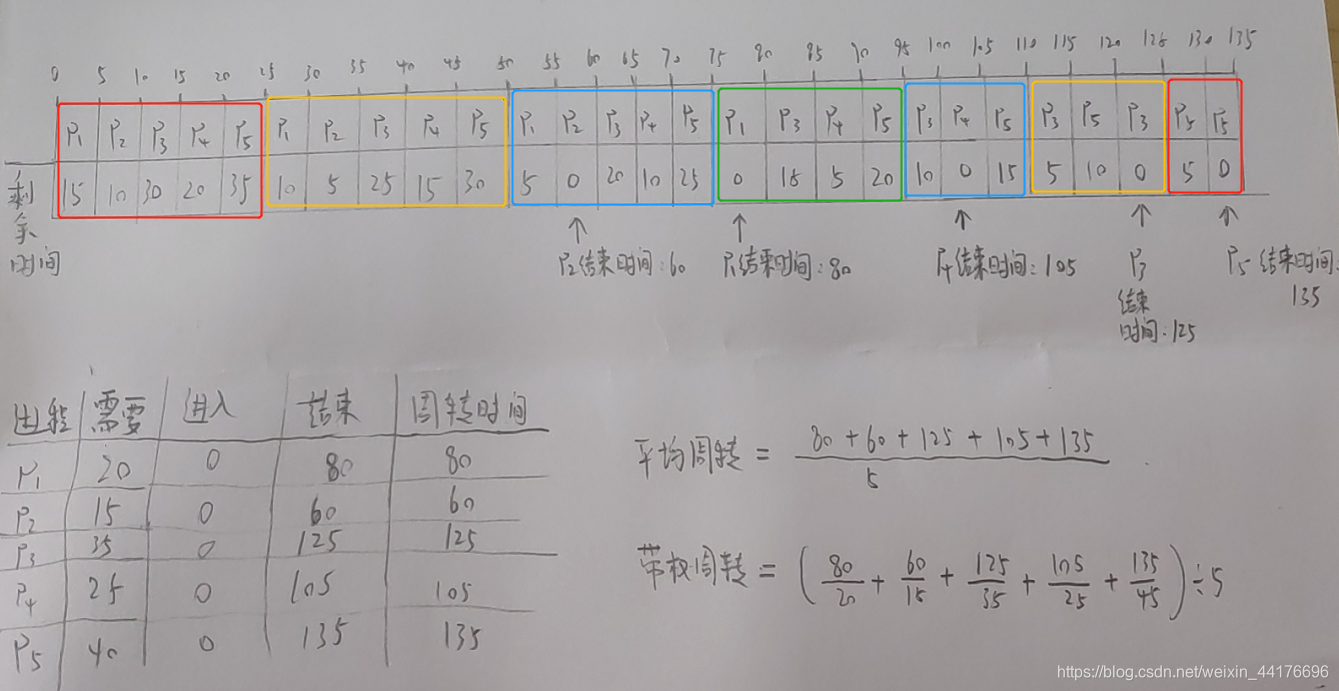 0 5 10 15 20 25 30 35 40 45 50 55 60 65 70 75 80 85 90 95 100 105 110 115 120 125 130 135
P1 P2 P3 P4 P5 P1 P2 P3 P4 P5 P1 P2 P3 P4 P5 P1 P3 P4 P5 P3 P4 P5 P3 P5 P3 P5 P5
剩余时间 15 10 30 20 35 10 5 25 15 30 5 0 20 10 25 0 15 5 20 10 0 15 5 10 0 5 0
↑ ↑ ↑ ↑ ↑
P2结束时间:60 P1结束时间:80 P4结束时间:105 P3 P5结束时间:
结束 135
时间:125
进程 需要 进入 结束 周转时间
P1 20 0 80 80
P2 15 0 60 60
P3 35 0 125 125
P4 25 0 105 105
P5 40 0 135 135
平均周转 = 80+60+125+105+135 / 5
带权周转 = (80/20 + 60/15 + 125/35 + 105/25 + 135/45) ÷ 5
https://blog.csdn.net/weixin_44176696